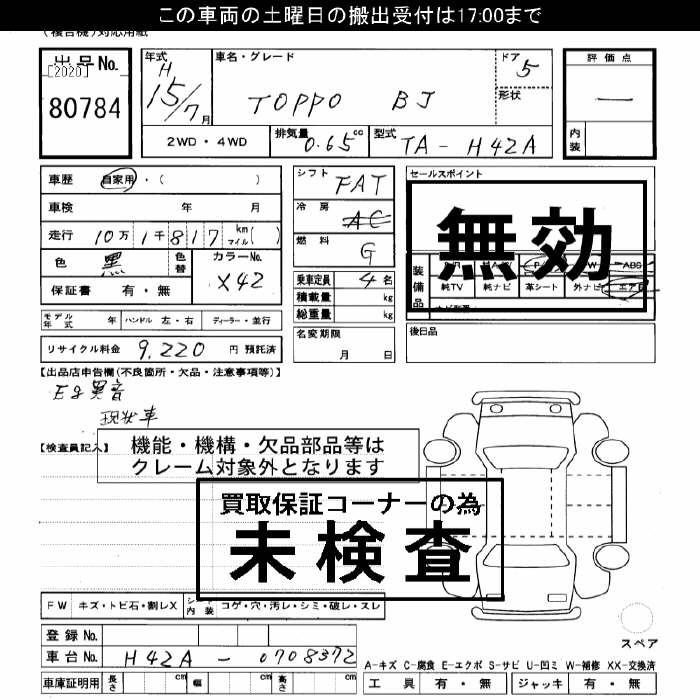 この車両の土曜日の搬出受付は17:00まで
(複合機)対応用紙
出品No.
[2020]
80784
年式 H 15/7月
車名・グレード
TOPPO BJ
ドア 5
形状
評価点
—
内装
2WD・4WD
排気量 0.65cc
型式 TA-H42A
車歴 自家用・( )
車検 年 月
走行 10万1千817km マイル( )
色 黒 色替
カラーNo. X42
保証書 有・無
シフト FAT
冷房 AC
燃料 G
乗車定員 4名
積載量 kg
総重量 kg
セールスポイント
無効
装備品
純TV 純ナビ 革シート 外ナビ エアB
ABS
モデル年式 年 ハンドル 左・右 ディーラー・並行
名変期限 月 日
後日品
リサイクル料金 9,220 円 預託済
【出品店申告欄(不良箇所・欠品・注意事項等)】
Eg異音
現状車
【検査員記入】
機能・機構・欠品部品等は
クレーム対象外となります
買取保証コーナーの為
未検査
FW キズ・トビ石・割レX シート内装 コゲ・穴・汚レ・シミ・破レ・スレ
スペア
登録No.
車台No. H42A-0708372
A-キズ C-腐食 E-エクボ S-サビ U-凹ミ W-補修 XX-交換済
車庫証明用 長さ cm 幅 cm 高さ cm
工具 有・無 ジャッキ 有・無